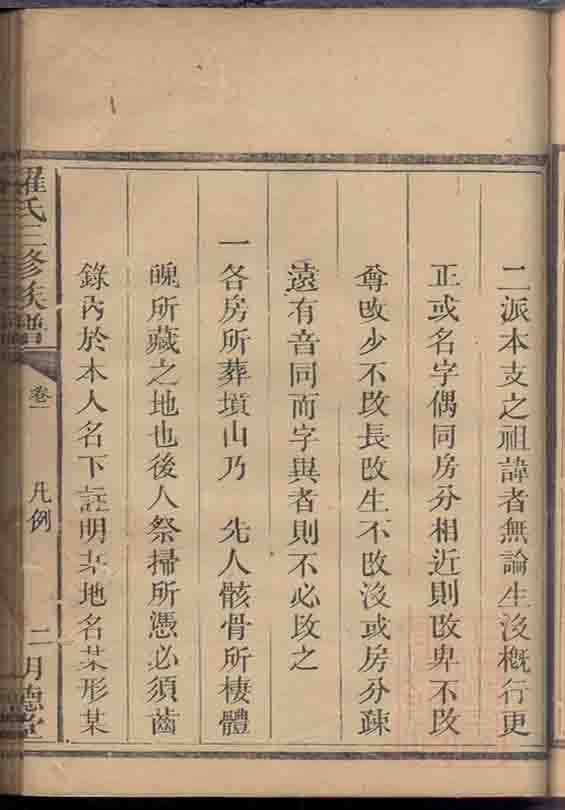 二派本支之祖諱者無論生沒概行更
正或名字偶同房分相近則改卑不改
尊改少不改長改生不改沒或房分疎
遠有音同而字異者則不必改之
一各房所葬墳山乃　先人骸骨所棲體
魄所藏之地也後人祭掃所憑必須齒
錄內於本人名下註明某地名某形某
羅氏三修族譜 卷一 凡例 二 明德堂